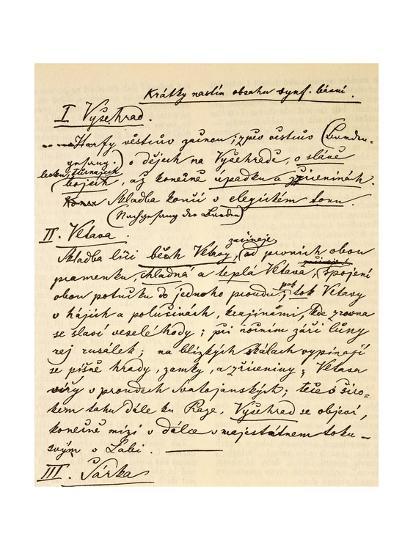 Krátký nástin obsahu symf. básní.
I Vyšehrad.
Harfy věštcův začnou; zpěv věštcův (Barden-
gesang) o dějích na Vyšehradě, o slávě
lesku, turnajích
bojích, až konečně úpadku a zříceninách.
Skladba končí v elegickém tonu.
(Nachgesang der Barden)
II. Vltava.
začínajíc
Skladba líčí běh Vltavy, od prvních obou
pramenku, chladná a teplá Vltava, spojení
obou potučku do jednoho proudu; pak tok Vltavy
v hájích a po lučinách, krajinami, kde zrovna
se slaví veselé hody; při nočním záři lůny
rej rusálek; na blízkých skalách vypínají
se pyšné hrady, zámky a zříceniny; Vltava
víří v proudech Svatojanských; teče v širo-
kém toku dále ku Praze, Vyšehrad se objeví,
konečně mizí v dálce v majestátném toku
svým v Labi.
III. Šárka